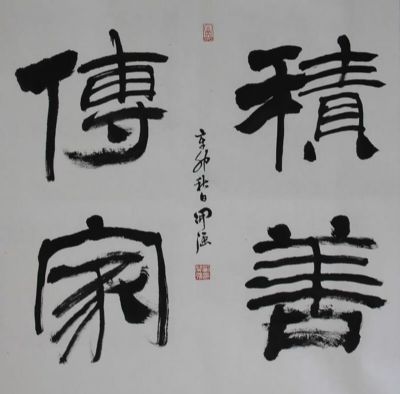 積善
傳家
辛卯秋日